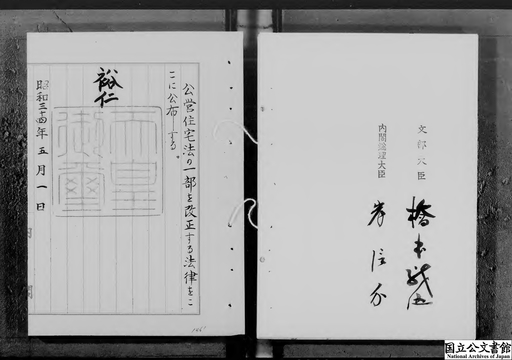 公営住宅法の一部を改正する法律をこ
こに公布する。
裕仁
天皇
御璽
昭和三十四年五月一日
内閣総理大臣
岸信介
文部大臣
橋本龍伍
国立公文書館
National Archives of Japan